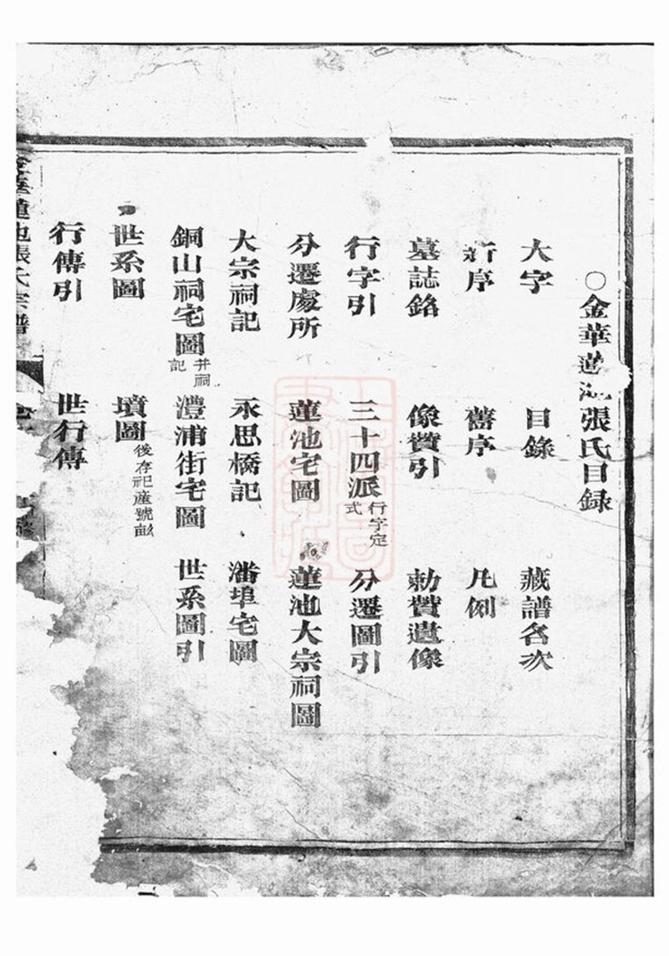 ○金華蓮池張氏目录
大字　目錄　藏譜名次
新序　舊序　凡例
墓誌銘　像贊引　勅贊遺像
行字引　三十四派行字定式　分遷圖引
分遷處所　蓮池宅圖　蓮池大宗祠圖
大宗祠記　永思橋記　潘埠宅圖
銅山祠宅圖并祠記　澧浦街宅圖　世系圖引
世系圖　墳圖後存祀產號畝
行傳引　世行傳
金華蓮池張氏宗譜